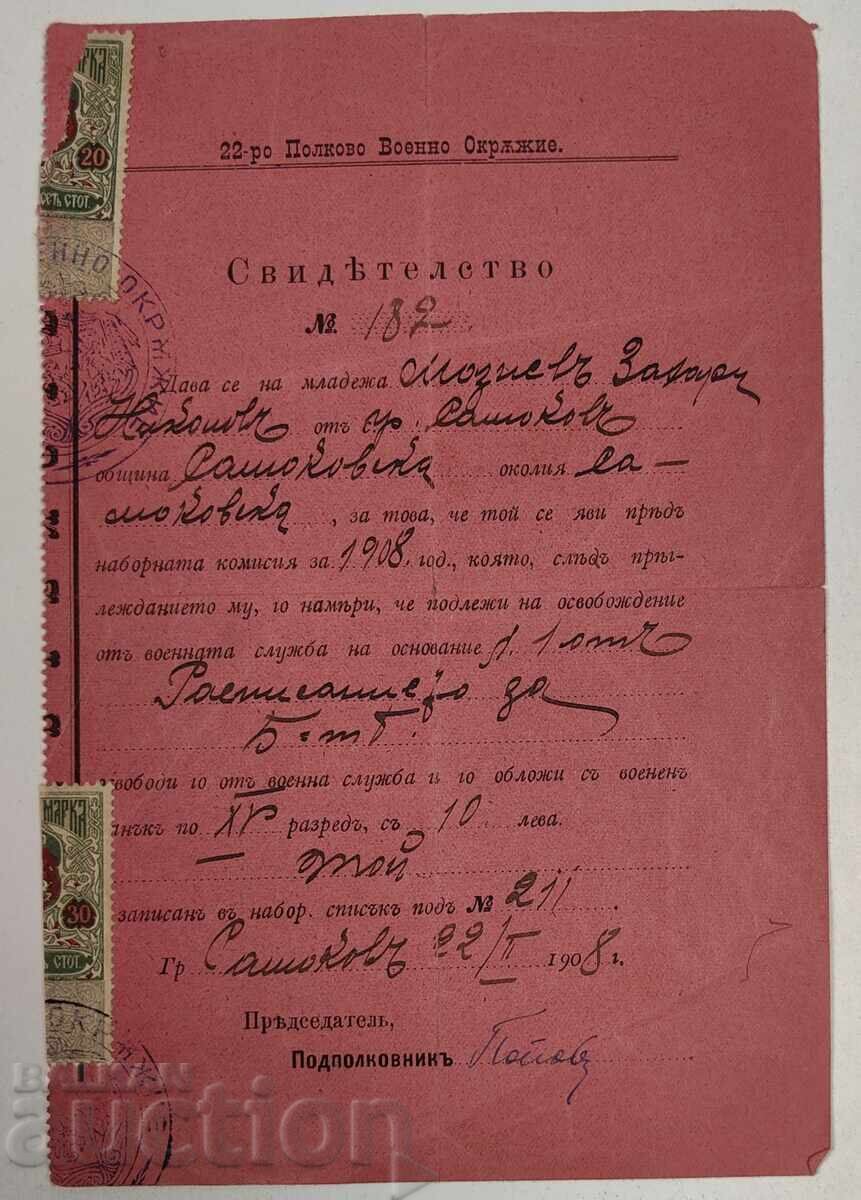 АРКА
20
СЕТЬ СТОТ
ЕННО ОКРѪЖ
22-ро Полково Военно Окрѫжие.
Свидѣтелство
№ 182
Дава се на младежа Мозиевъ Захари
Николовъ отъ гр. Самоковъ
община Самоковска околия Са-
моковска, за това, че той се яви прѣдъ
наборната комисия за 1908 год., която, слѣдъ прѣг-
лежданието му, го намѣри, че подлежи на освобождение
отъ военната служба на основание 1 отъ
Расписанието за
свободи го отъ военна служба и го обложи съ военен
анъкъ по XV разредъ, съ 10 лева.
— той
записанъ въ набор. списъкъ подъ № 211.
Гр Самоковъ 22/II 1908 г.
Прѣдседатель,
Подполковникъ Поповъ
МАРКА
30
СТОТ
ОКРѪЖ
auction